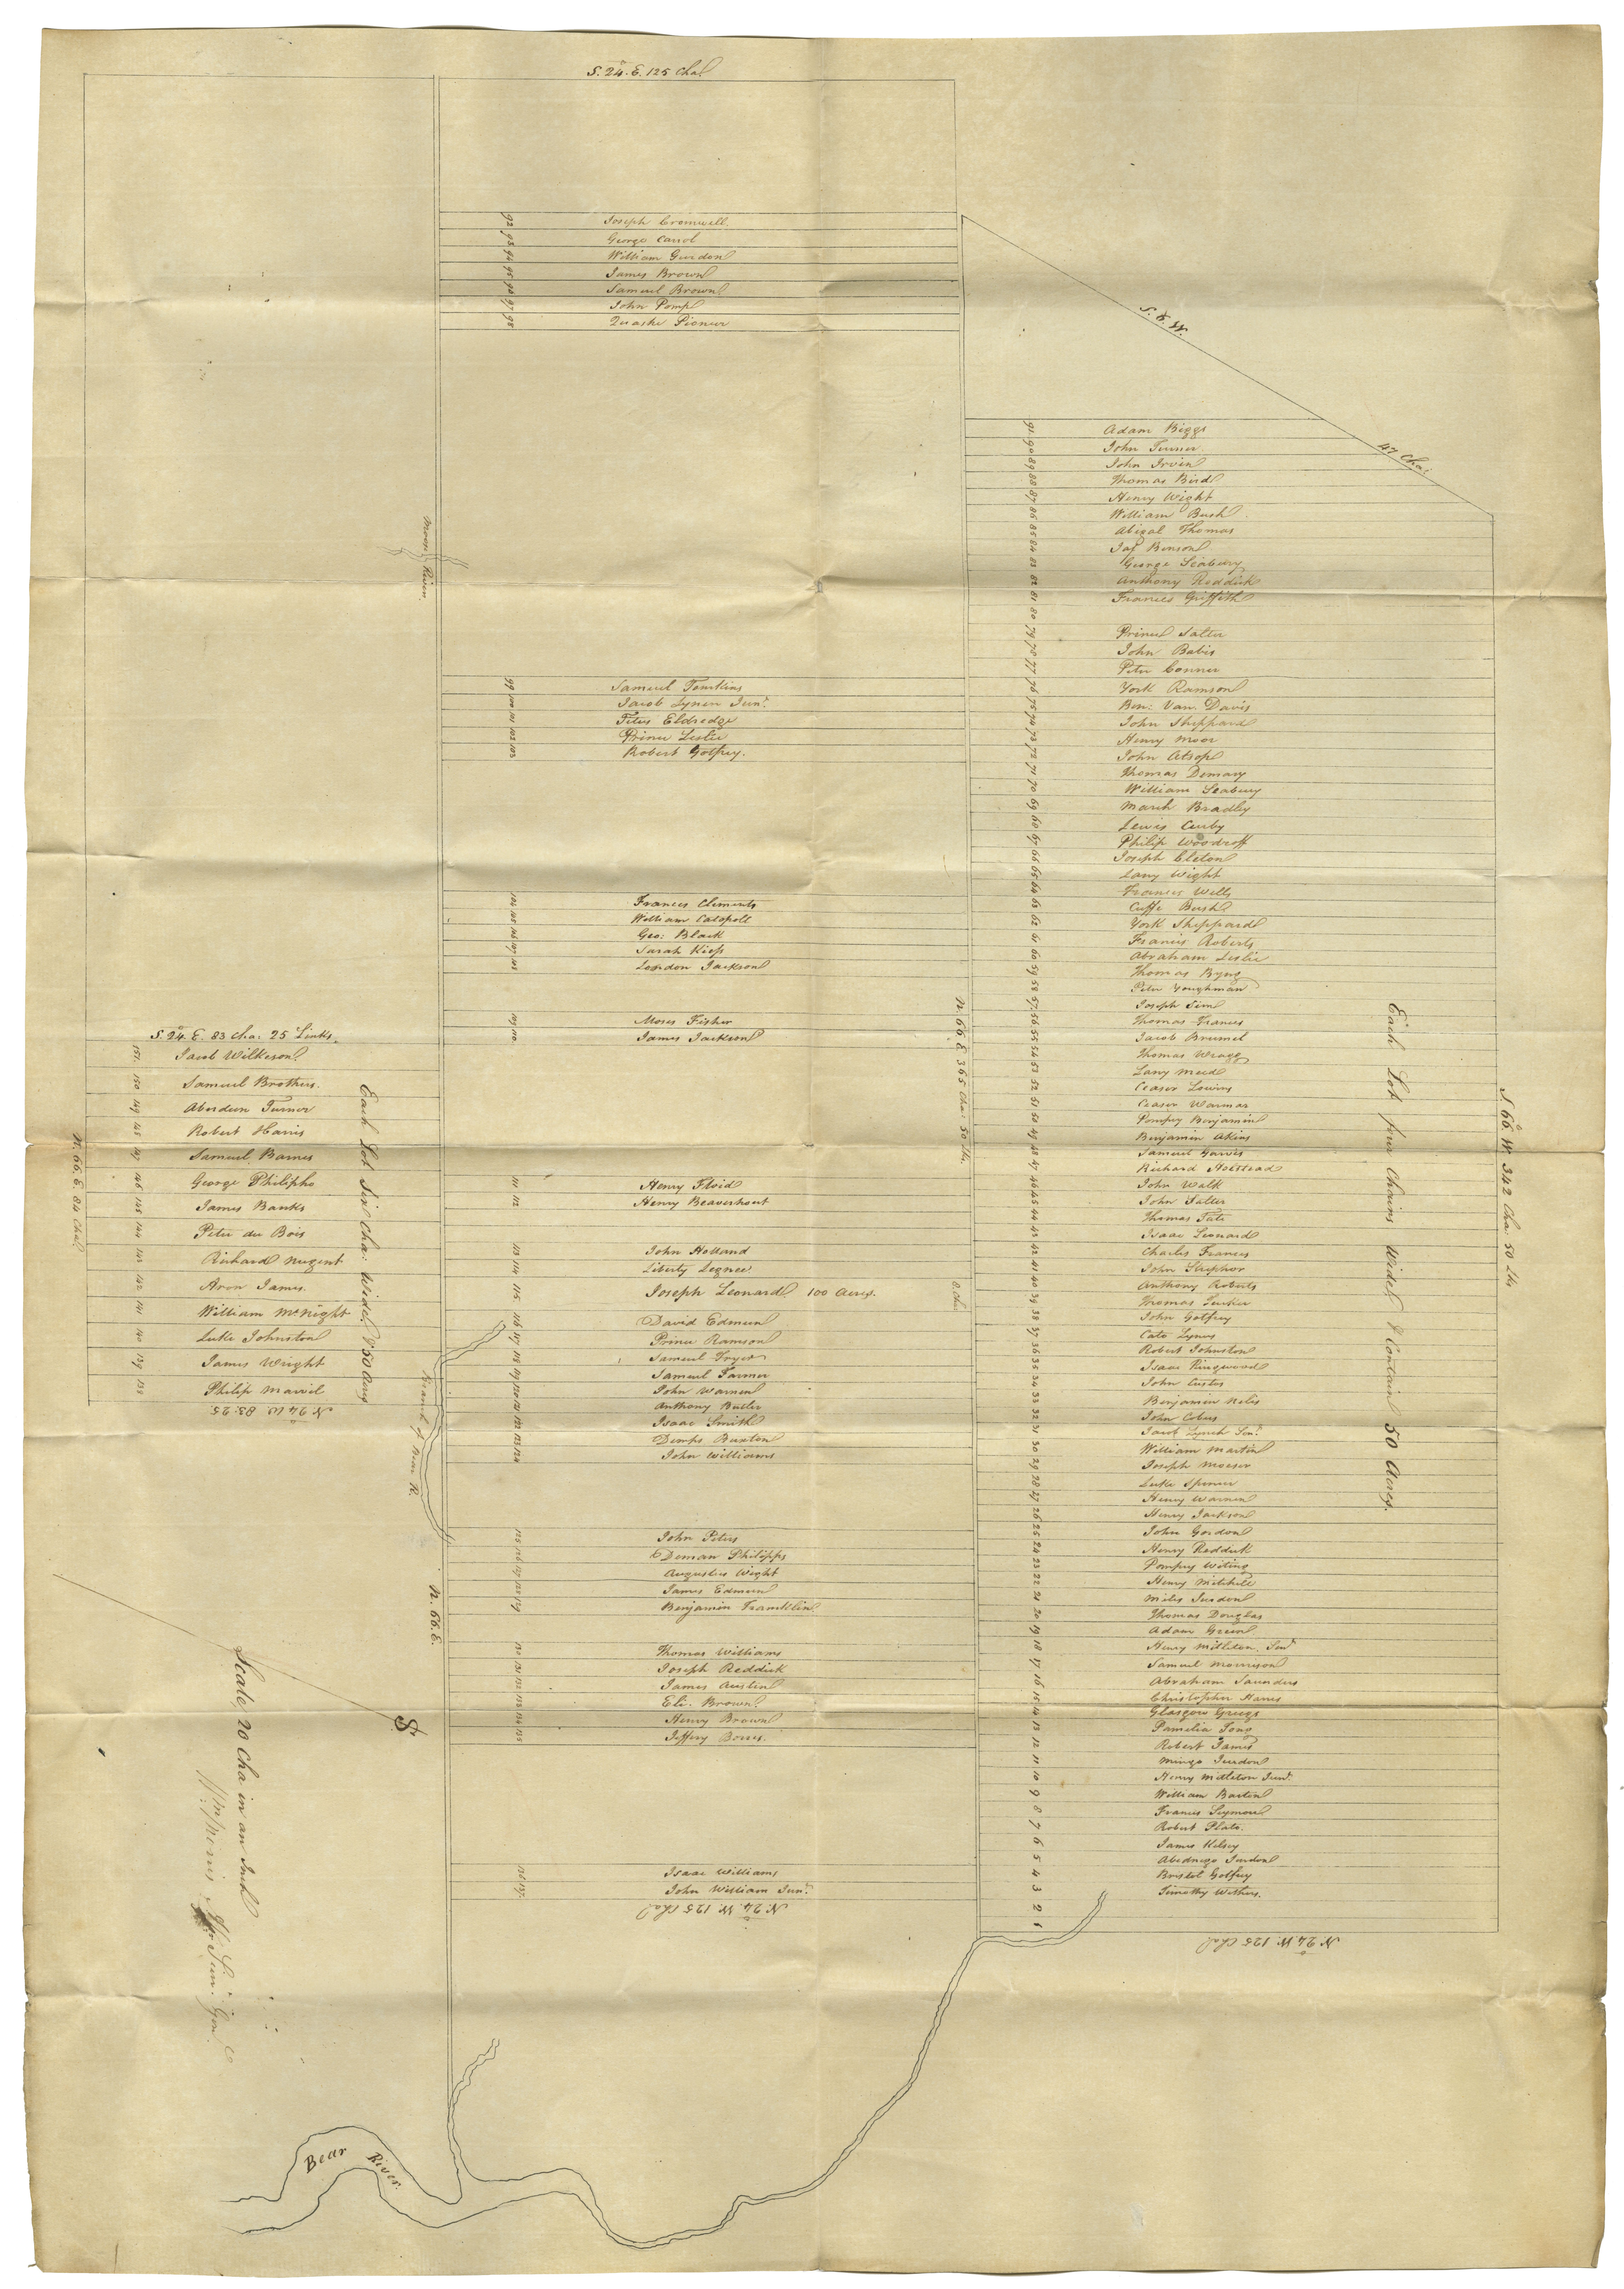 S. 24. E. 125 Cha.
92 Joseph Cromwell.
93 George Carrol
94 William Gurdon
95 James Brown
96 Samuel Brown
97 John Pomp
98 Quashe Pioneer
S. 9. W.
47 Cha:
91 Adam Biggs
90 John Turner.
89 John Irvin
88 Thomas Bird
87 Henry Wight
86 William Bush
85 Abigal Thomas
84 Jas Benson
83 George Seabury
82 Anthony Reddick
81 Frances Griffith
80
79 Prince Satter
78 John Batis
77 Peter Conner
76 York Ramson
75 Ben: Van. Davis
74 John Sheppard
73 Henry Moor
72 John Atsop
71 Thomas Demary
70 William Seabury
69 March Bradley
68 Lewis Curby
67 Philip Woodroff
66 Joseph Cleton
65 Lany Wight
64 Frances Wells
63 Cuffe Bush
62 York Sheppard
61 Francis Roberts
60 Abraham Leslie
59 Thomas Byng
58 Peter Youghman
57 Joseph Sim
56 Thomas Frances
55 Jacob Brumel
54 Thomas Wragg
53 Lany Meed
52 Ceaser Lowins
51 Ceaser Warmar
50 Pompey Benjamin
49 Benjamin Akins
48 Samuel Jarvis
47 Richard Holstead
46 John Walk
45 John Satter
44 Thomas Tate
43 Isaac Leonard
42 Charles Frances
41 John Stephor
40 Anthony Roberts
39 Thomas Tucker
38 John Golfrey
37 Cato Lynus
36 Robert Johnston
35 Isaac Ringwood
34 John Custis
33 Benjamin Niles
32 John Cobus
31 Jacob Lynch Senr.
30 William Martin
29 Joseph Moeser
28 Luke Spencer
27 Henry Warren
26 Henry Jackson
25 John Gordon
24 Henry Reddick
23 Pompey Witing
22 Henry Mitchell
21 Miles Jurdon
20 Thomas Douglas
19 Adam Green
18 Henry Mitleton. Senr
17 Samuel Morrison
16 Abraham Saunders
15 Christopher Harris
14 Glasgow Griggs
13 Pamelia Tong
12 Robert James
11 Mingo Jurdon
10 Henry Mitleton Junr.
9 William Barton
8 Francis Seymour
7 Robert Plato.
6 James Kelsey
5 Abednego Jurdon
4 Bristol Golfrey
3 Timothy Withers.
2
1
N 24 W. 125 Cha.
Each Lot four Chains Wide & Contain 50 Acres.
S. 66. W. 342 Cha: 50 Lks
Moose River.
99 Samuel Tomkins
100 Jacob Lynen Junr.
101 Titus Eldredge
102 Prince Leslie
103 Robert Golfrey.
104 Frances Clements
105 William Catopell
106 Geo: Black
107 Sarah Kiess
108 London Jackson
109 Moses Fisher
110 James Jackson
N. 66. E. 365 Cha: 50 Lks.
8. Cha:
111 Henry Floid
112 Henry Beaverhout
113 John Holland
114 Liberty Legree
115 Joseph Leonard 100 Acres.
116 David Edmun
117 Prince Ramson
118 Samuel Fryer
119 Samuel Farmer
120 John Warren
121 Anthony Butler
122 Isaac Smith
123 Demps Buxton
124 John Williams
125 John Peters
126 Deman Philipps
127 Augustus Wight
128 James Edmun
129 Benjamin Framklin
130 Thomas Williams
131 Joseph Reddick
132 James Austin
133 Eli. Brown.
134 Henry Brown
135 Jeffery Bores.
136 Isaac Williams
137 John William Junr.
N. 24 W 125 Cha.
S. 24. E. 83 Cha: 25 Links.
151. Jacob Wilkison
150 Samuel Brothers.
149 Aberdeen Turner
148 Robert Harris
147 Samuel Barnes
146 George Philipho
145 James Banks
144 Peter du Bois
143 Richard Nugent
142 Aron James.
141 William McNight
140 Luke Johnston
139 James Wright
138 Philip Marvil
N 24 W. 83: 25
N. 66. E. 84 Cha.
Each Lot Six Cha: Wide & 50 Acres
Branch of Bear R.
N. 66. E.
S
Scale, 20 Cha in an Inch
Wm. Morris Surr. Genl
Bear River.